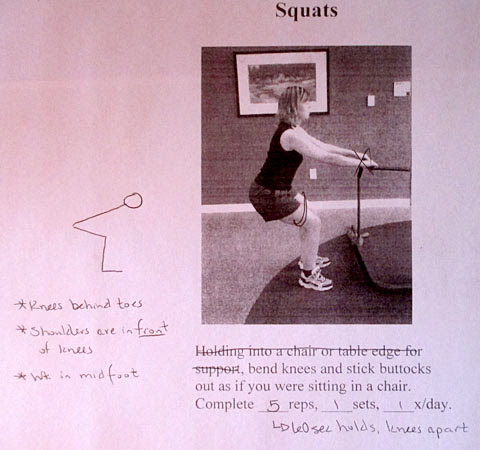 Squats
*Knees behind toes
*Shoulders are in front
of knees
*Wt in midfoot
Holding into a chair or table edge for
support, bend knees and stick buttocks
out as if you were sitting in a chair.
Complete 5 reps, 1 sets, 1 x/day.
60sec holds, knees apart